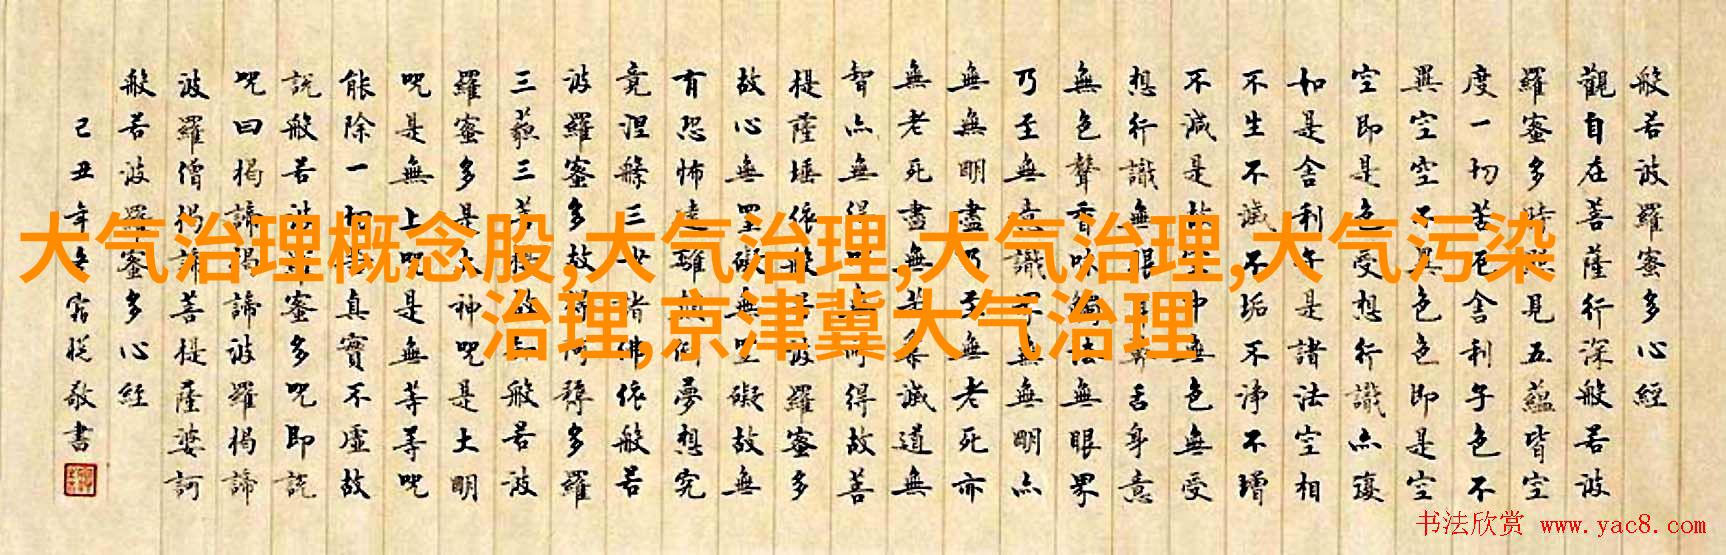 大气治理概念股,大气治理,大气治理,大气污染
治理,京津冀大气治理
般若波羅蜜多心經
觀自在菩薩行深般若波
羅蜜多時照見五蘊皆空
度一切苦厄舍利子色不
異空空不異色色即是空
空即是色受想行識亦復
如是舍利子是諸法空相
不生不滅不垢不淨不增
不減是故空中無色無受
想行識無眼耳鼻舌身意
無色聲香味觸法無眼界
乃至無意識界無無明亦
無無明盡乃至無老死亦
無老死盡無苦集滅道無
智亦無得以無所得故菩
提薩埵依般若波羅蜜多
故心無罣礙無罣礙故無
有恐怖遠離顛倒夢想究
竟涅槃三世諸佛依般若
波羅蜜多故得阿耨多羅
三藐三菩提故知般若波
羅蜜多是大神咒是大明
咒是無上咒是無等等咒
能除一切苦真實不虛故
說般若波羅蜜多咒即說
咒曰揭諦揭諦波羅揭諦
波羅僧揭諦菩提薩婆訶
般若波羅蜜多心經
己丑年冬敬書
书法欣赏 www.yac8.com